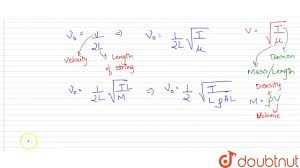 ν₀ = v/2L ⇒ ν₀ = 1/2L √(T/μ) V = √(T/μ)
Velocity Length of string Tension
Mass/Length
ν₀ = 1/2L √(TL/M) ⇒ ν₀ = 1/2 √(T/LρAL) Density
M = ρV
Volume
doubtnut